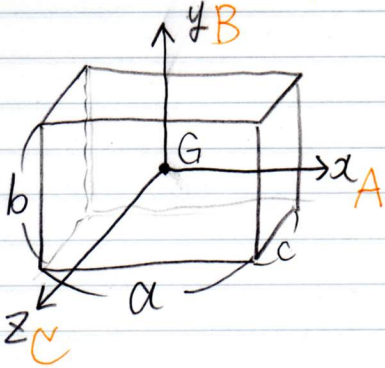 y B
G
x
A
b
c
a
z
C